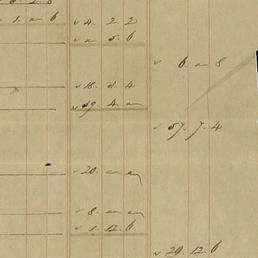 1. " 6
4. 2 2
" 5. 6
6 " 8
18. 3. 4
39 4. "
57. 7. 4
20. " "
8. " "
1. 12. 6
29. 12. 6